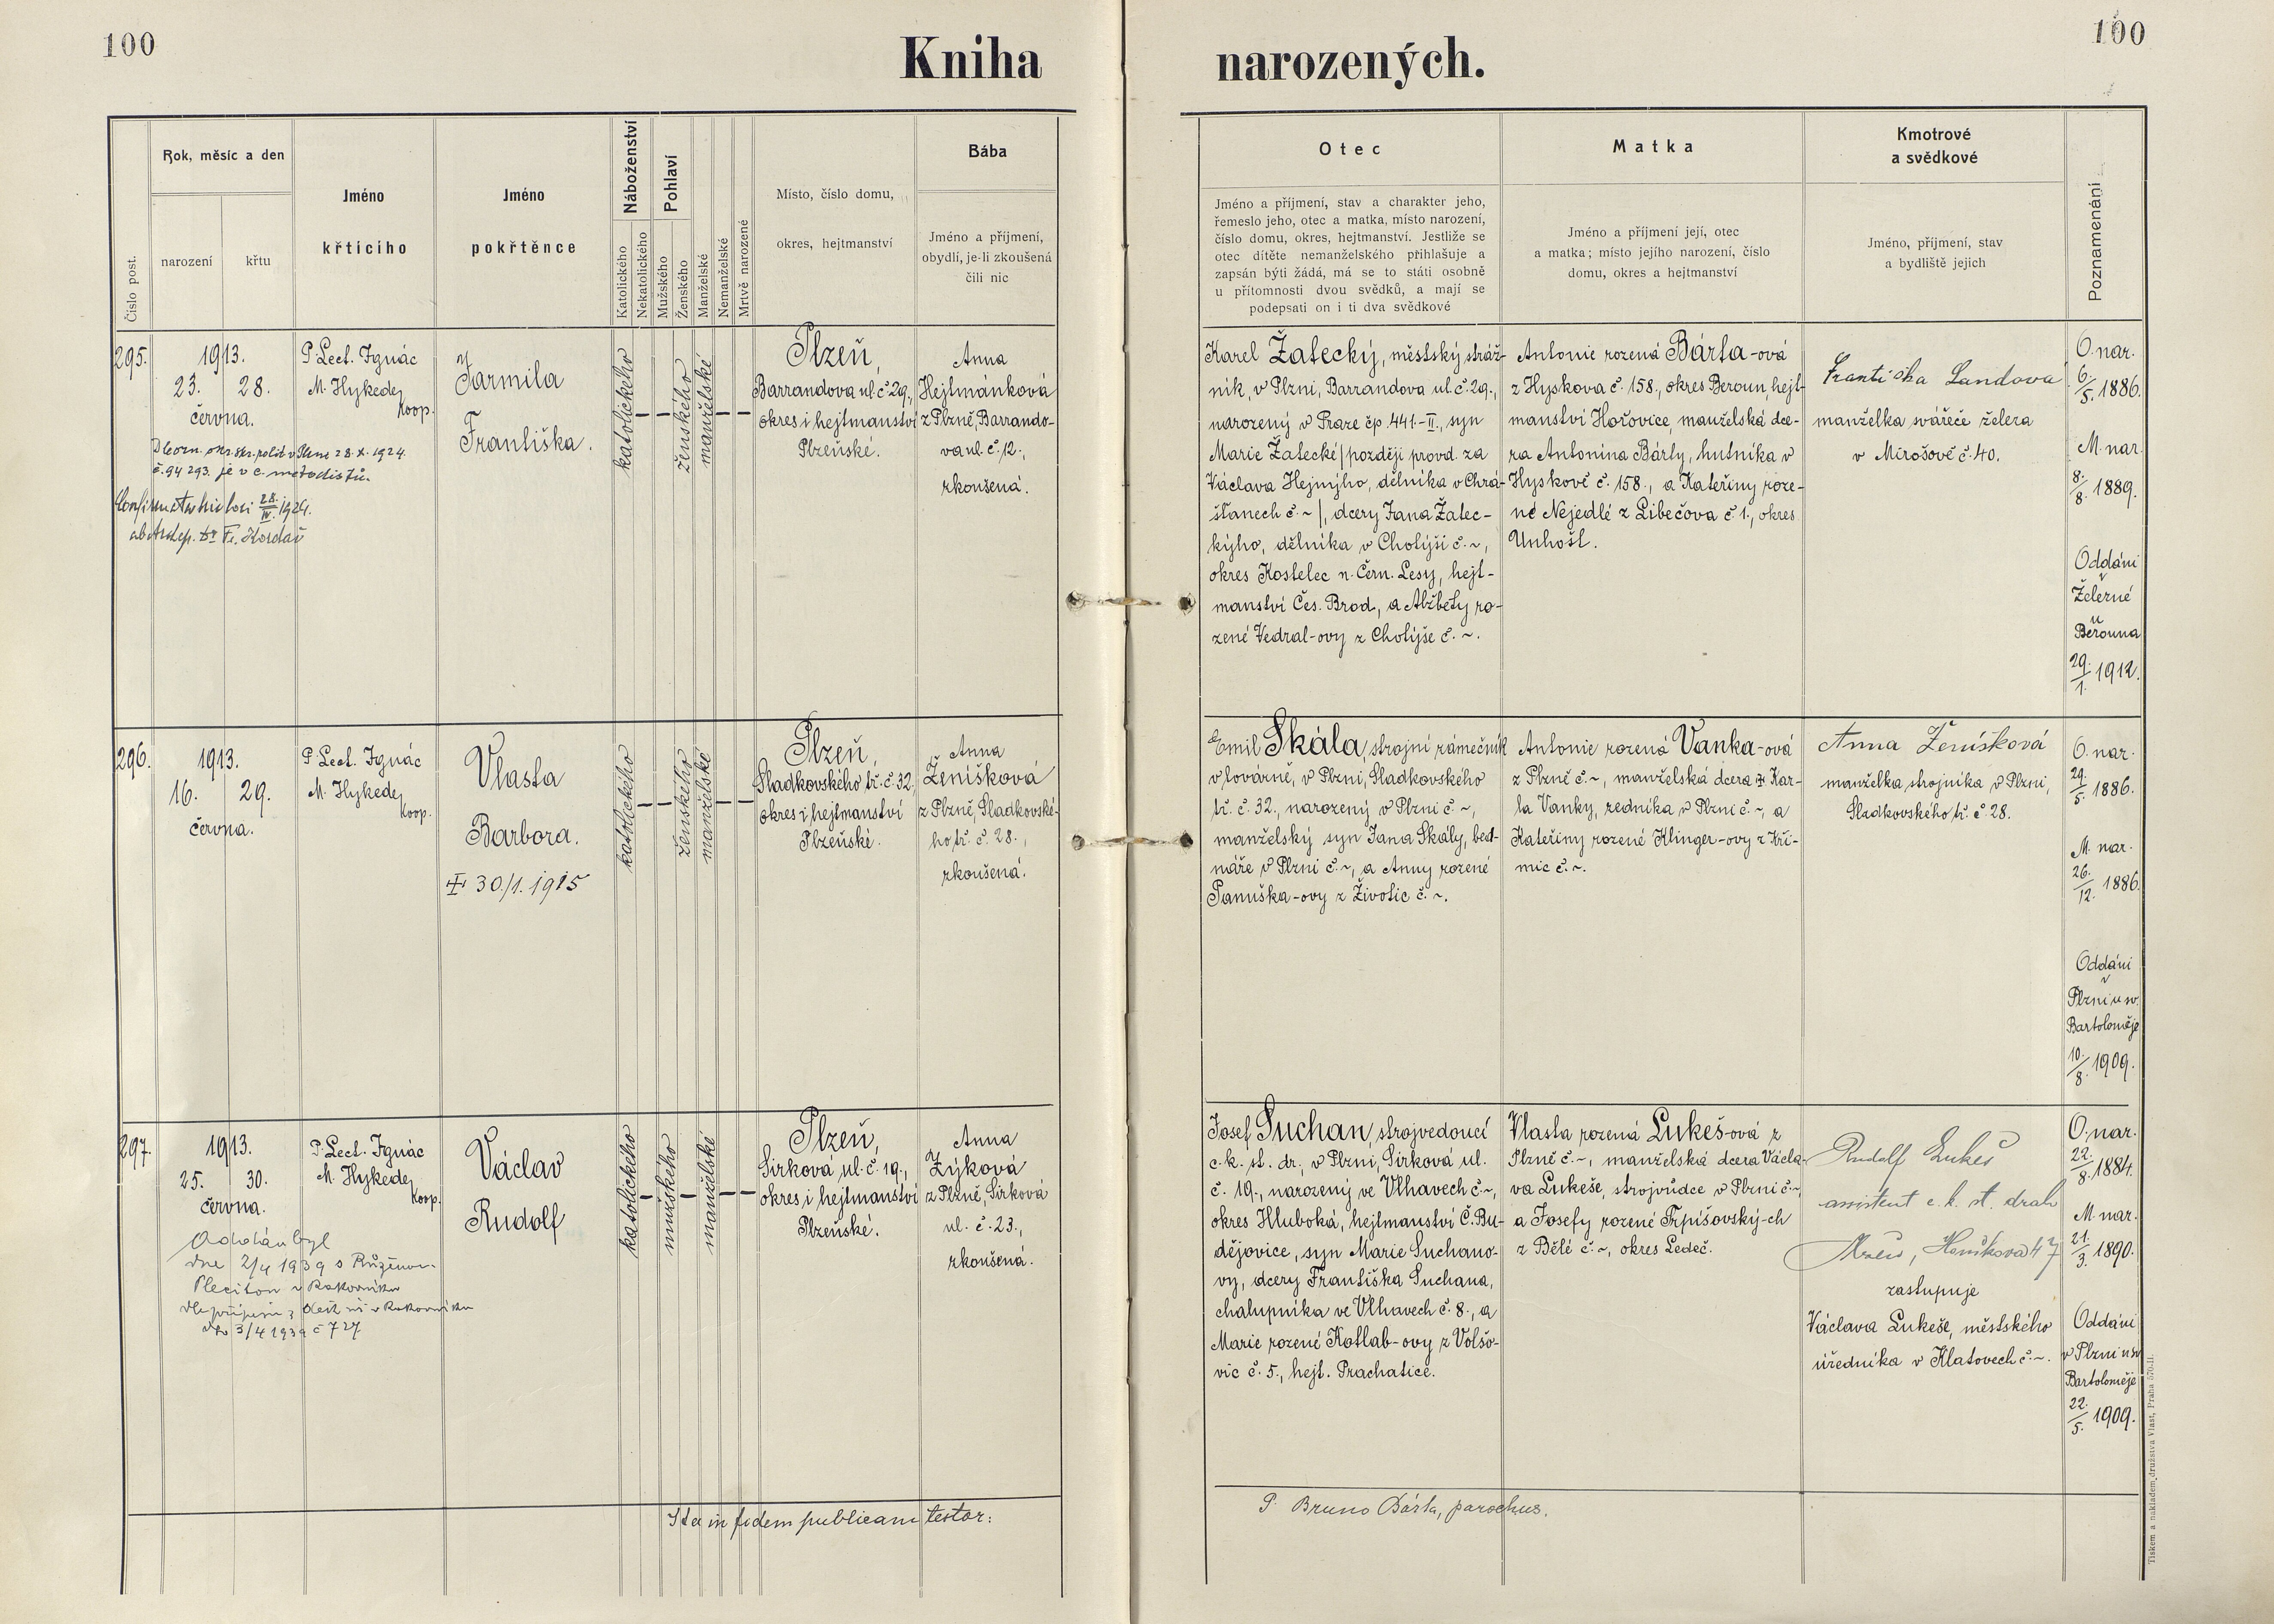 100
Kniha narozených.
100
Číslo post.
Rok, měsíc a den
narození
křtu
Jméno
křticího
Jméno
pokřtěnce
Náboženství
Katolického
Nekatolického
Pohlaví
Mužského
Ženského
Manželské
Nemanželské
Mrtvě narozené
Místo, číslo domu,
okres, hejtmanství
Bába
Jméno a příjmení,
obydlí, je-li zkoušená
čili nic
Otec
Jméno a příjmení, stav a charakter jeho,
řemeslo jeho, otec a matka, místo narození,
číslo domu, okres, hejtmanství. Jestliže se
otec dítěte nemanželského přihlašuje a
zapsán býti žádá, má se to státi osobně
u přítomnosti dvou svědků, a mají se
podepsati on i ti dva svědkové
Matka
Jméno a příjmení její, otec
a matka; místo jejího narození, číslo
domu, okres a hejtmanství
Kmotrové
a svědkové
Jméno, příjmení, stav
a bydliště jejich
Poznamenání
295.
1913.
23. 28.
června.
P. Lect. Ignác
M. Hykede,
koop.
Jarmila
Františka.
katolického
ženského
manželské
Plzeň,
Barrandova ul. č. 29.,
okres i hejtmanství
Plzeňské.
Anna
Hejtmánková
z Plzně, Barrando-
va ul. č. 12.,
zkoušená.
28. X. 1924.
č. 94 293. je v c. metodistů.
28./IV. 1924.
Fr. Kordač
Karel Žatecký, městský stráž-
ník, v Plzni, Barrandova ul. č. 29.,
narozený v Praze čp. 441.-II., syn
Marie Žatecké /později provd. za
Václava Hejnýho, dělníka v Chrá-
šťanech č. ~/, dcery Jana Žatec-
kýho, dělníka v Cholýši č. ~,
okres Kostelec n. Čern. Lesy, hejt-
manství Čes. Brod, a Alžběty ro-
zené Vedral-ovy z Cholýše č. ~.
Antonie rozená Bárta-ová
z Hyskova č. 158., okres Beroun, hejt-
manství Hořovice, manželská dce-
ra Antonína Bárty, hutníka v
Hyskově č. 158., a Kateřiny roze-
né Nejedlé z Libečova č. 1., okres
Unhošť.
Františka Landova
manželka svářeče železa
v Mirošově č. 40.
O. nar.
6./5. 1886.
M. nar.
8./8. 1889.
Oddáni
v
Železné
u
Berouna
29./1. 1912.
296.
1913.
16. 29.
června.
P. Lect. Ignác
M. Hykede,
koop.
Vlasta
Barbora.
30./1. 1915
katolického
ženského
manželské
Plzeň,
Sladkovského tř. č. 32.,
okres i hejtmanství
Plzeňské.
Anna
Ženíšková
z Plzně, Sladkovské-
ho tř. č. 28.,
zkoušená.
Emil Skála, strojní zámečník
v továrně, v Plzni, Sladkovského
tř. č. 32., narozený v Plzni č. ~,
manželský syn Jana Skály, bed-
náře v Plzni č. ~, a Anny rozené
Panuška-ovy z Životic č. ~.
Antonie rozená Vanka-ová
z Plzně č. ~, manželská dcera Kar-
la Vanky, zedníka v Plzni č. ~, a
Kateřiny rozené Klinger-ovy z Kři-
mic č. ~.
Anna Ženíšková
manželka strojníka v Plzni,
Sladkovského tř. č. 28.
O. nar.
29./5. 1886.
M. nar.
26./12. 1886.
Oddáni
v
Plzni u sv.
Bartoloměje
10./8. 1909.
297.
1913.
25. 30.
června.
P. Lect. Ignác
M. Hykede,
koop.
Václav
Rudolf
katolického
mužského
manželské
Plzeň,
Sirková ul. č. 19.,
okres i hejtmanství
Plzeňské.
Anna
Zýková
z Plzně, Sirková
ul. č. 23.,
zkoušená.
Oddán byl
dne 2/4 1939 s Růženou
v Rakovníku
v Rakovníku
3/4 1939 č 727
Josef Suchan, strojvedoucí
c. k. st. dr., v Plzni, Sirková ul.
č. 19., narozený ve Vlhavech č. ~,
okres Hluboká, hejtmanství Č. Bu-
dějovice, syn Marie Suchano-
vy, dcery Františka Suchana,
chalupníka ve Vlhavech č. 8., a
Marie rozené Kotlab-ovy z Volšo-
vic č. 5., hejt. Prachatice.
Vlasta rozená Lukeš-ová z
Plzně č. ~, manželská dcera Václa-
va Lukeše, strojvůdce v Plzni č. ~,
a Josefy rozené Trpišovský-ch
z Bělé č. ~, okres Ledeč.
Rudolf Lukeš
assistent c. k. st. drah
zastupuje
Václava Lukeše, městského
úředníka v Klatovech č. ~.
O. nar.
22./8. 1884.
M. nar.
21./3. 1890.
Oddáni
v Plzni u sv.
Bartoloměje
22./5. 1909.
Ita in fidem publicam testor:
P. Bruno Bárta, parochus.
Tiskem a nákladem družstva Vlast, Praha 570-II.